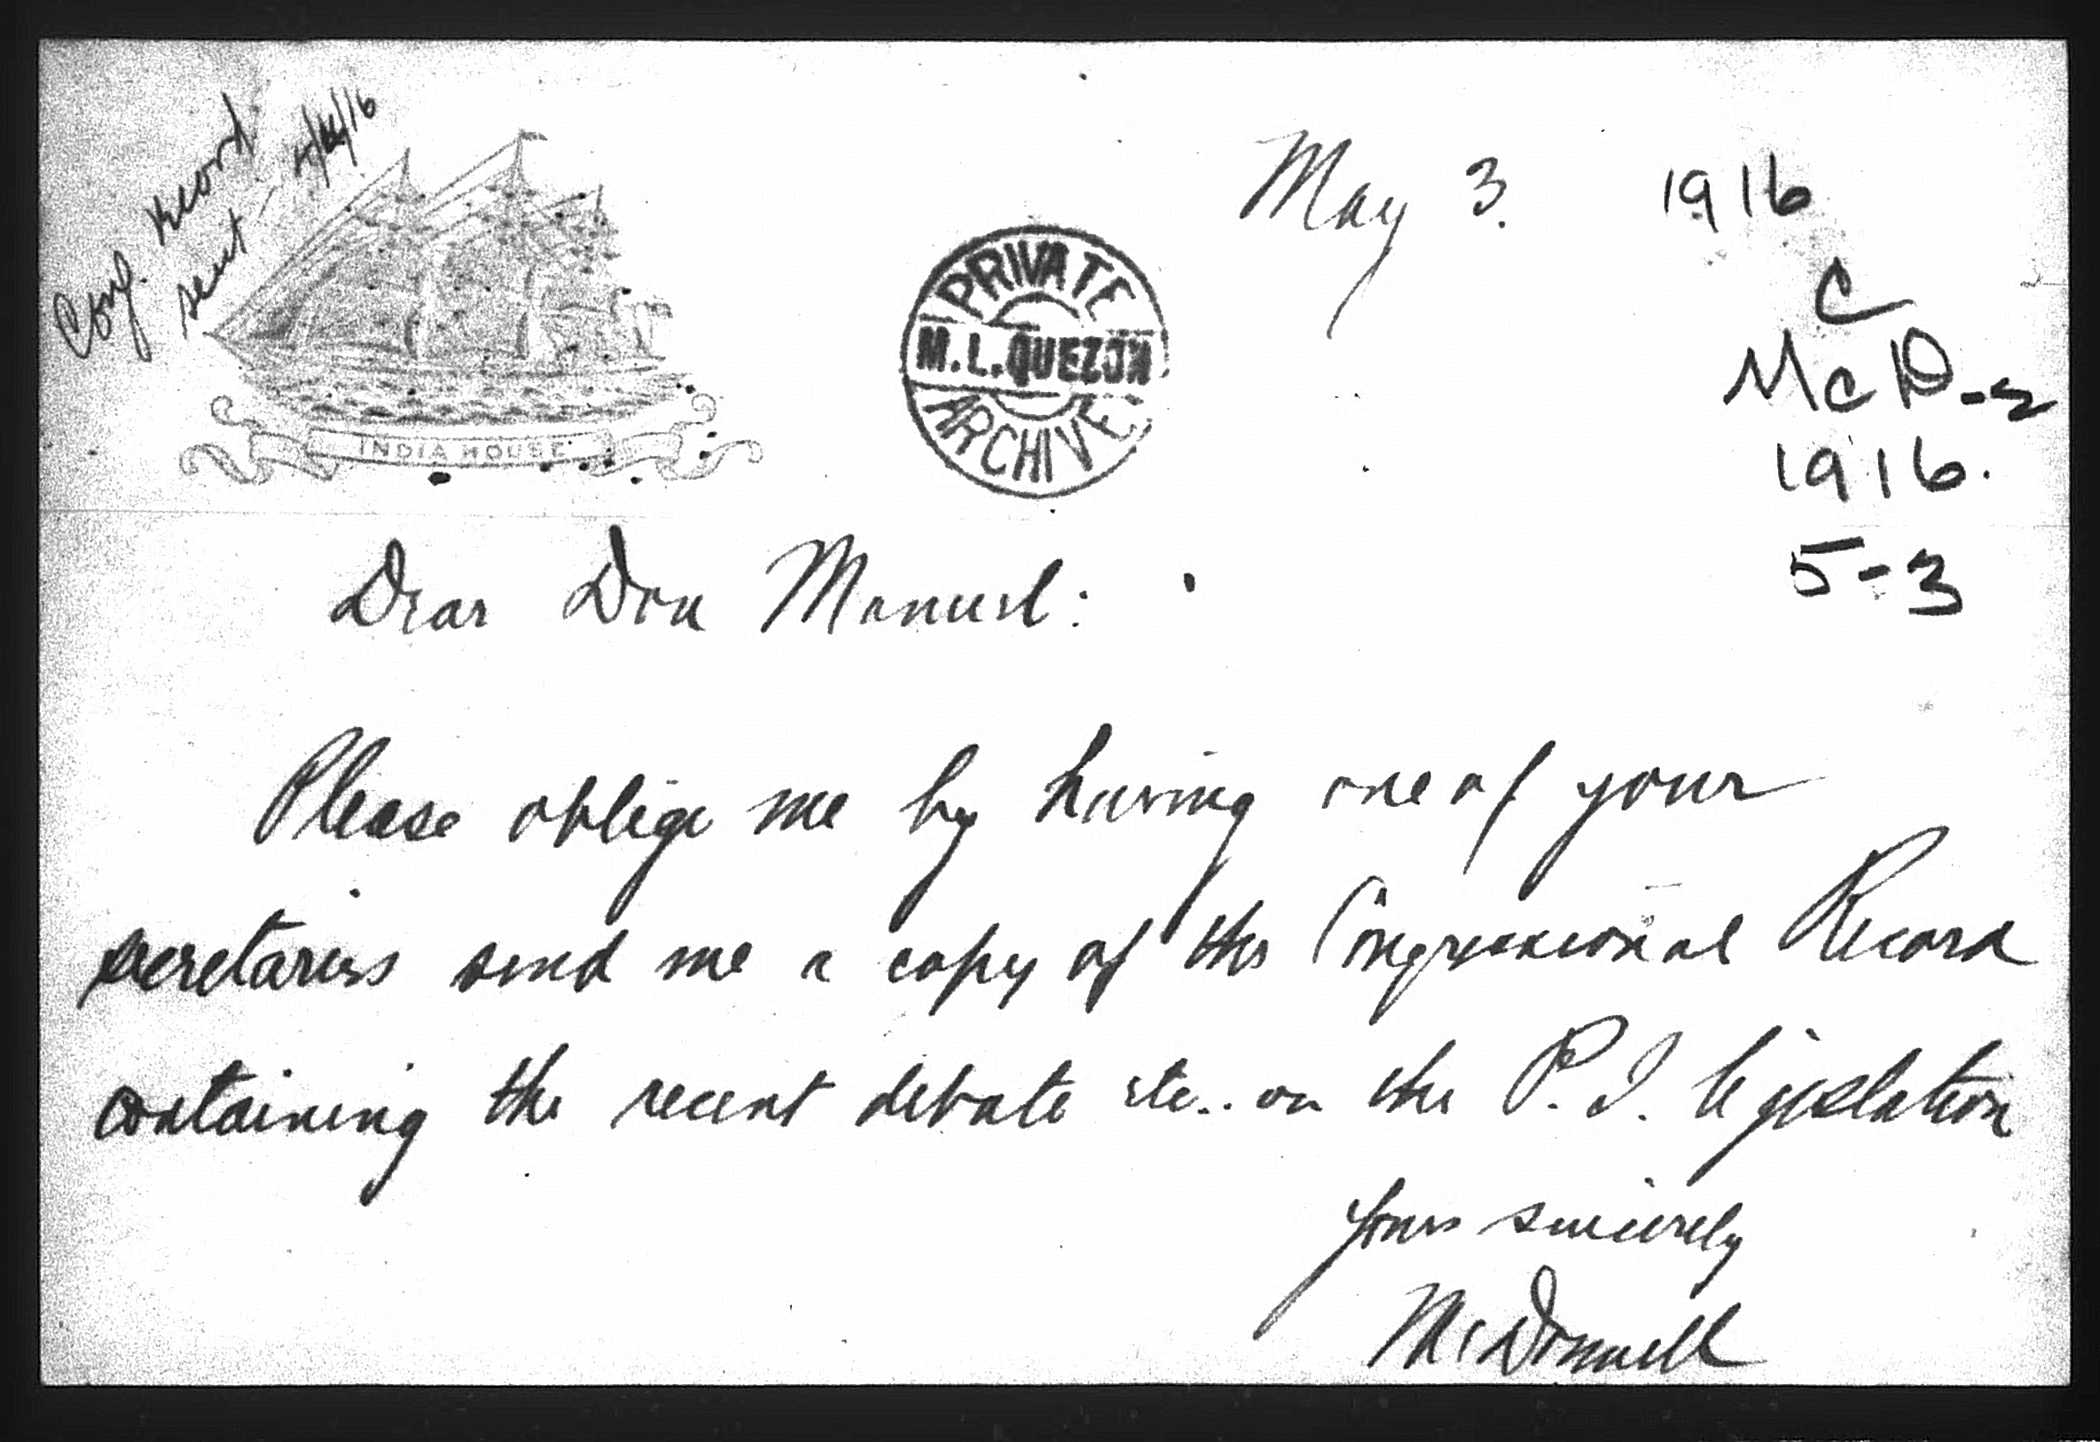 Cong. Record
sent
May 3. 1916
PRIVATE
M. L. QUEZON
ARCHIVE
INDIA HOUSE
C
McD-2
1916.
5-3
Dear Don Manuel:
Please oblige me by having one of your
secretaries send me a copy of the Congressional Record
containing the recent debate etc.. on the P. I. legislation
Yours sincerely
McDonnell